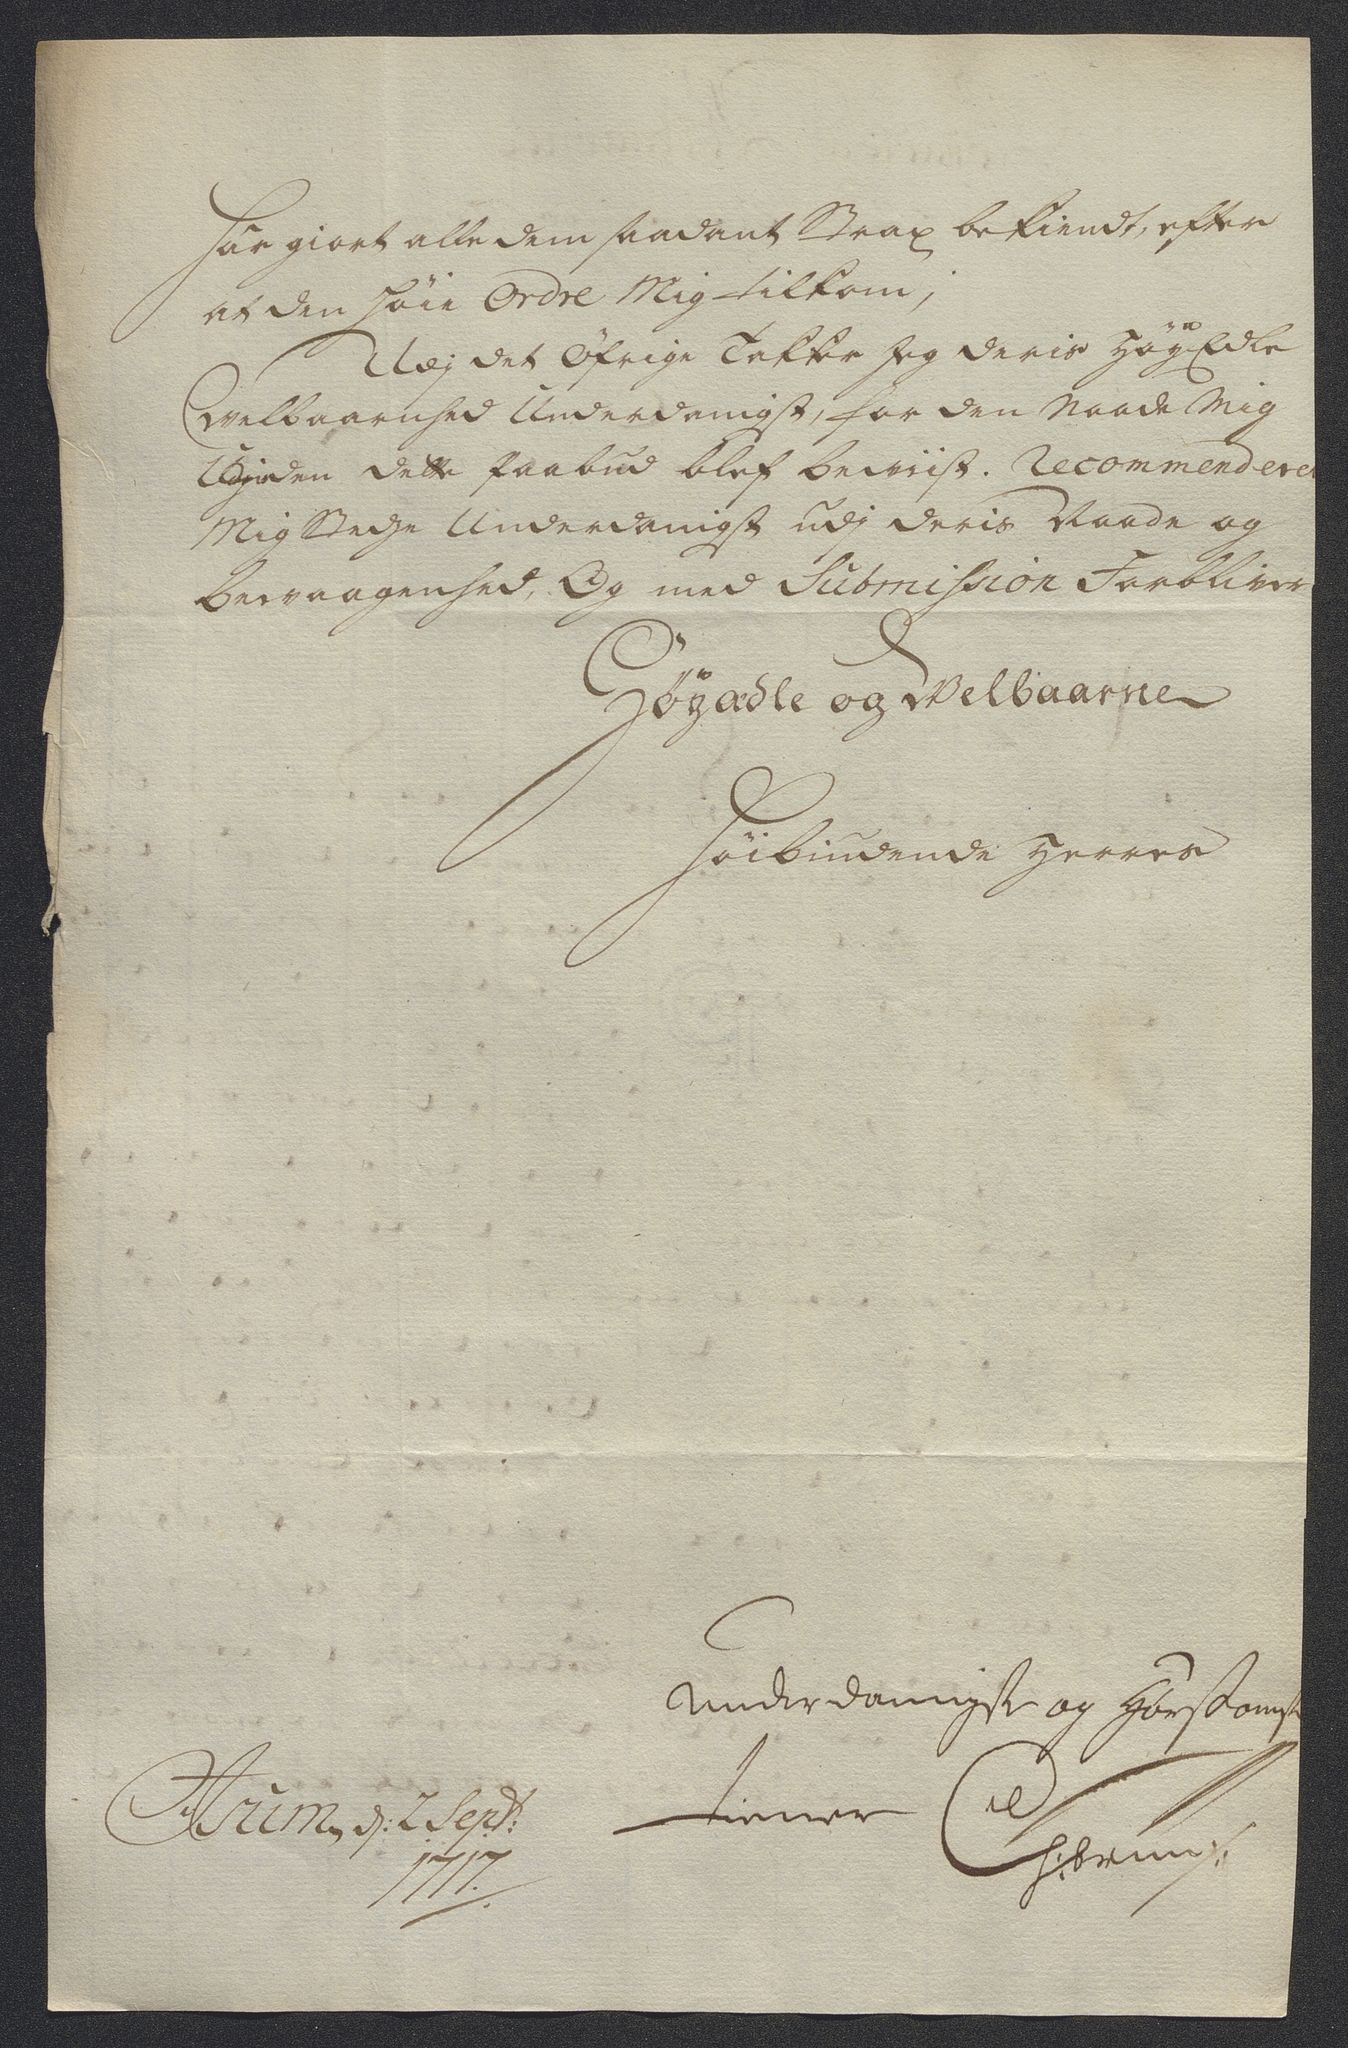 har giort alle dem saadant Strax bekiendt, efter
at den høie Ordre Mig tilkom,
Udj det Øfrige Takker Jeg deris HøyEdle
Welbaarnhed Underdanigst, for den Naade Mig
Udj den dette paabud blef beviist. Recommenderer
Mig Stedse Underdanigst udj deris Naade og
bevaagenhed, Og med Submission Forbliver
Høyædle og Welbaarne
Høibiudende Herres
Underdanigste og Hørsomste
tiener
Arum, d: 2 Sept:
1717.